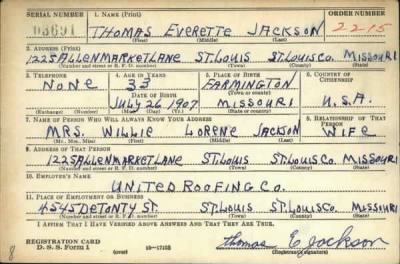 SERIAL NUMBER 1. NAME (Print) ORDER NUMBER
THOMAS EVERETTE JACKSON 2215
(First) (Middle) (Last)
2. ADDRESS (Print)
1225 ALLENMARKETLANE ST. LOUIS ST. LOUIS CO. MISSOURI
(Number and street or R. F. D. number) (Town) (County) (State)
3. TELEPHONE 4. AGE IN YEARS 5. PLACE OF BIRTH 6. COUNTRY OF CITIZENSHIP
NONE 33 FARMINGTON
DATE OF BIRTH (Town or county)
JULY 26 1907 MISSOURI U.S.A.
(Exchange) (Number) (Mo.) (Day) (Yr.) (State or country)
7. NAME OF PERSON WHO WILL ALWAYS KNOW YOUR ADDRESS 8. RELATIONSHIP OF THAT PERSON
MRS. WILLIE LORENE JACKSON WIFE
(Mr., Mrs., Miss) (First) (Middle) (Last)
9. ADDRESS OF THAT PERSON
1225 ALLENMARKETLANE ST. LOUIS ST. LOUIS CO. MISSOURI
(Number and street or R. F. D. number) (Town) (County) (State)
10. EMPLOYER'S NAME
UNITED ROOFING CO.
11. PLACE OF EMPLOYMENT OR BUSINESS
4545 DETONTY ST. ST. LOUIS ST. LOUIS CO. MISSOURI
(Number and street or R. F. D. number) (Town) (County) (State)
I AFFIRM THAT I HAVE VERIFIED ABOVE ANSWERS AND THAT THEY ARE TRUE.
REGISTRATION CARD
D. S. S. Form 1 (over) 16—17105 Thomas E. Jackson
(Registrant's signature)
8